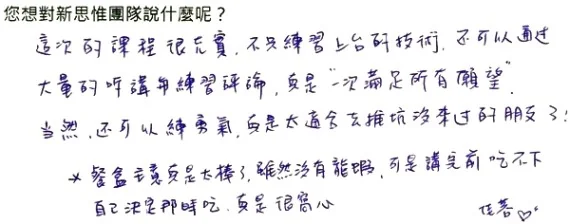 您想對新思惟團隊說什麼呢？
這次的課程很充實，不只練習上台的技術，還可以通過
大量的聽講與練習評論，真是"一次滿足所有願望"。
當然，還可以練勇氣，真是太適合去推坑沒來過的朋友了！
* 餐盒主意真是太棒了，雖然沒有龍蝦，可是講完前吃不下
自己決定那時吃，真是很窩心
佳蓉♡